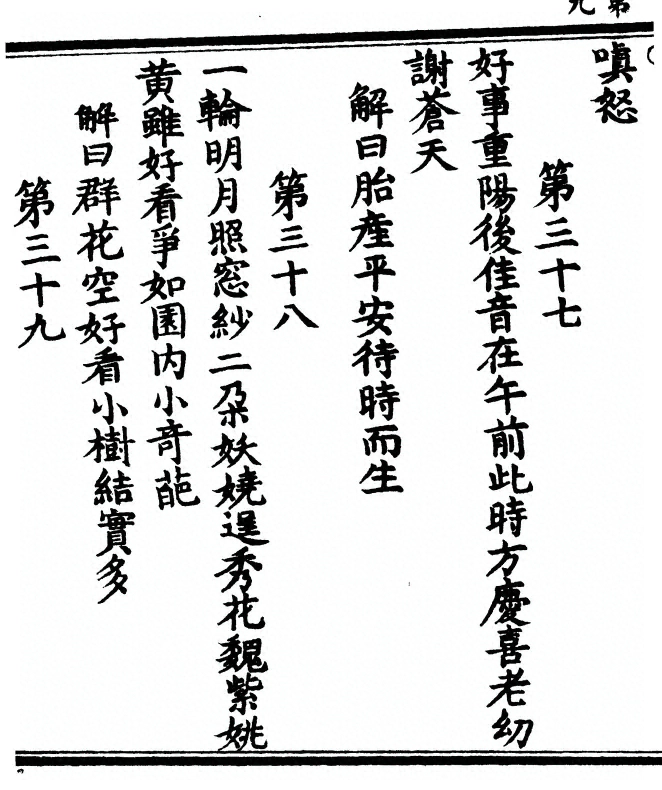 嗔怒
第三十七
好事重陽後佳音在午前此時方慶喜老幼
謝蒼天
解曰胎產平安待時而生
第三十八
一輪明月照窓紗二朶妖嬈逞秀花魏紫姚
黄雖好看爭如園内小奇葩
解曰群花空好看小樹結實多
第三十九